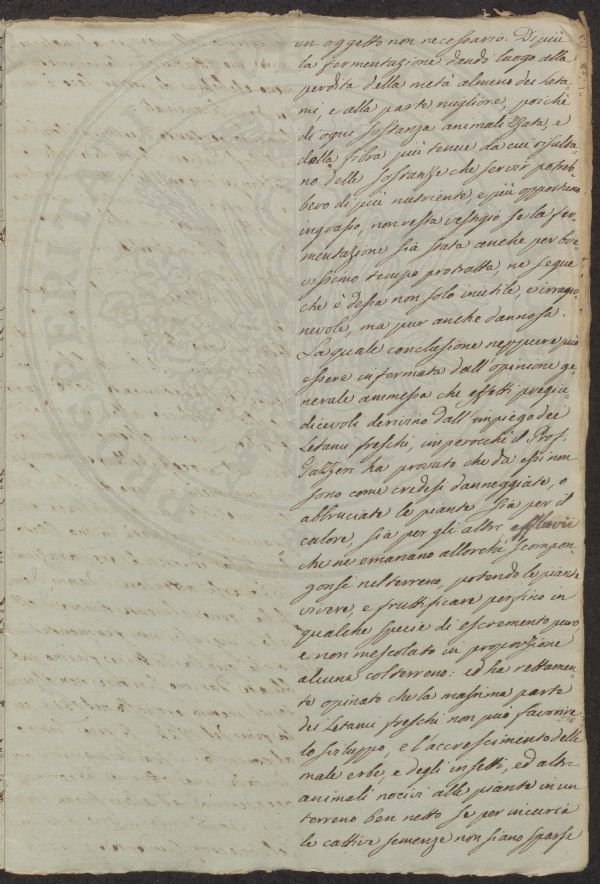 un oggetto non necessario. Di più
la fermentazione dando luogo alla
perdita della metà almeno dei Leta-
mi, e alla parte migliore, poiche
di ogni sostanza animalizzata, e
dalla fibra più tenue da cui risulta-
no delle sostanze che servir potreb-
bero di più nutriente, e più opportuno
ingrasso, non resta vestigio se la fer-
mentazione sia stata anche per bre-
vissimo tempo protratta, ne segue
che è dessa non solo inutile, e irragio-
nevole, ma pur anche dannosa.
La quale conclusione neppure può
essere infermata dall'opinione ge-
nerale ammessa che effetti pregiu-
dicevoli derivino dall'impiego dei
Letami freschi, imperocchè il Prof.
Gazzeri ha provato che da essi non
sono come credesi danneggiate, o
abbruciate le piante sia per il
calore, sia per gli altri effluvii
che ne emanano allorchè scompon-
gonsi nel terreno, potendo le piante
vivere, e fruttificare persino in
qualche specie di escremento puro,
e non mescolato in proporzione
alcuna col terreno: ed ha rettamen-
te opinato che la massima parte
dei Letami freschi non può favorire
lo sviluppo, e l'accrescimento delle
male erbe, e degli insetti, ed altri
animali nocivi alle piante in un
terreno ben netto se per incuria
le cattive semenze non siano sparse
PROSPERITATI